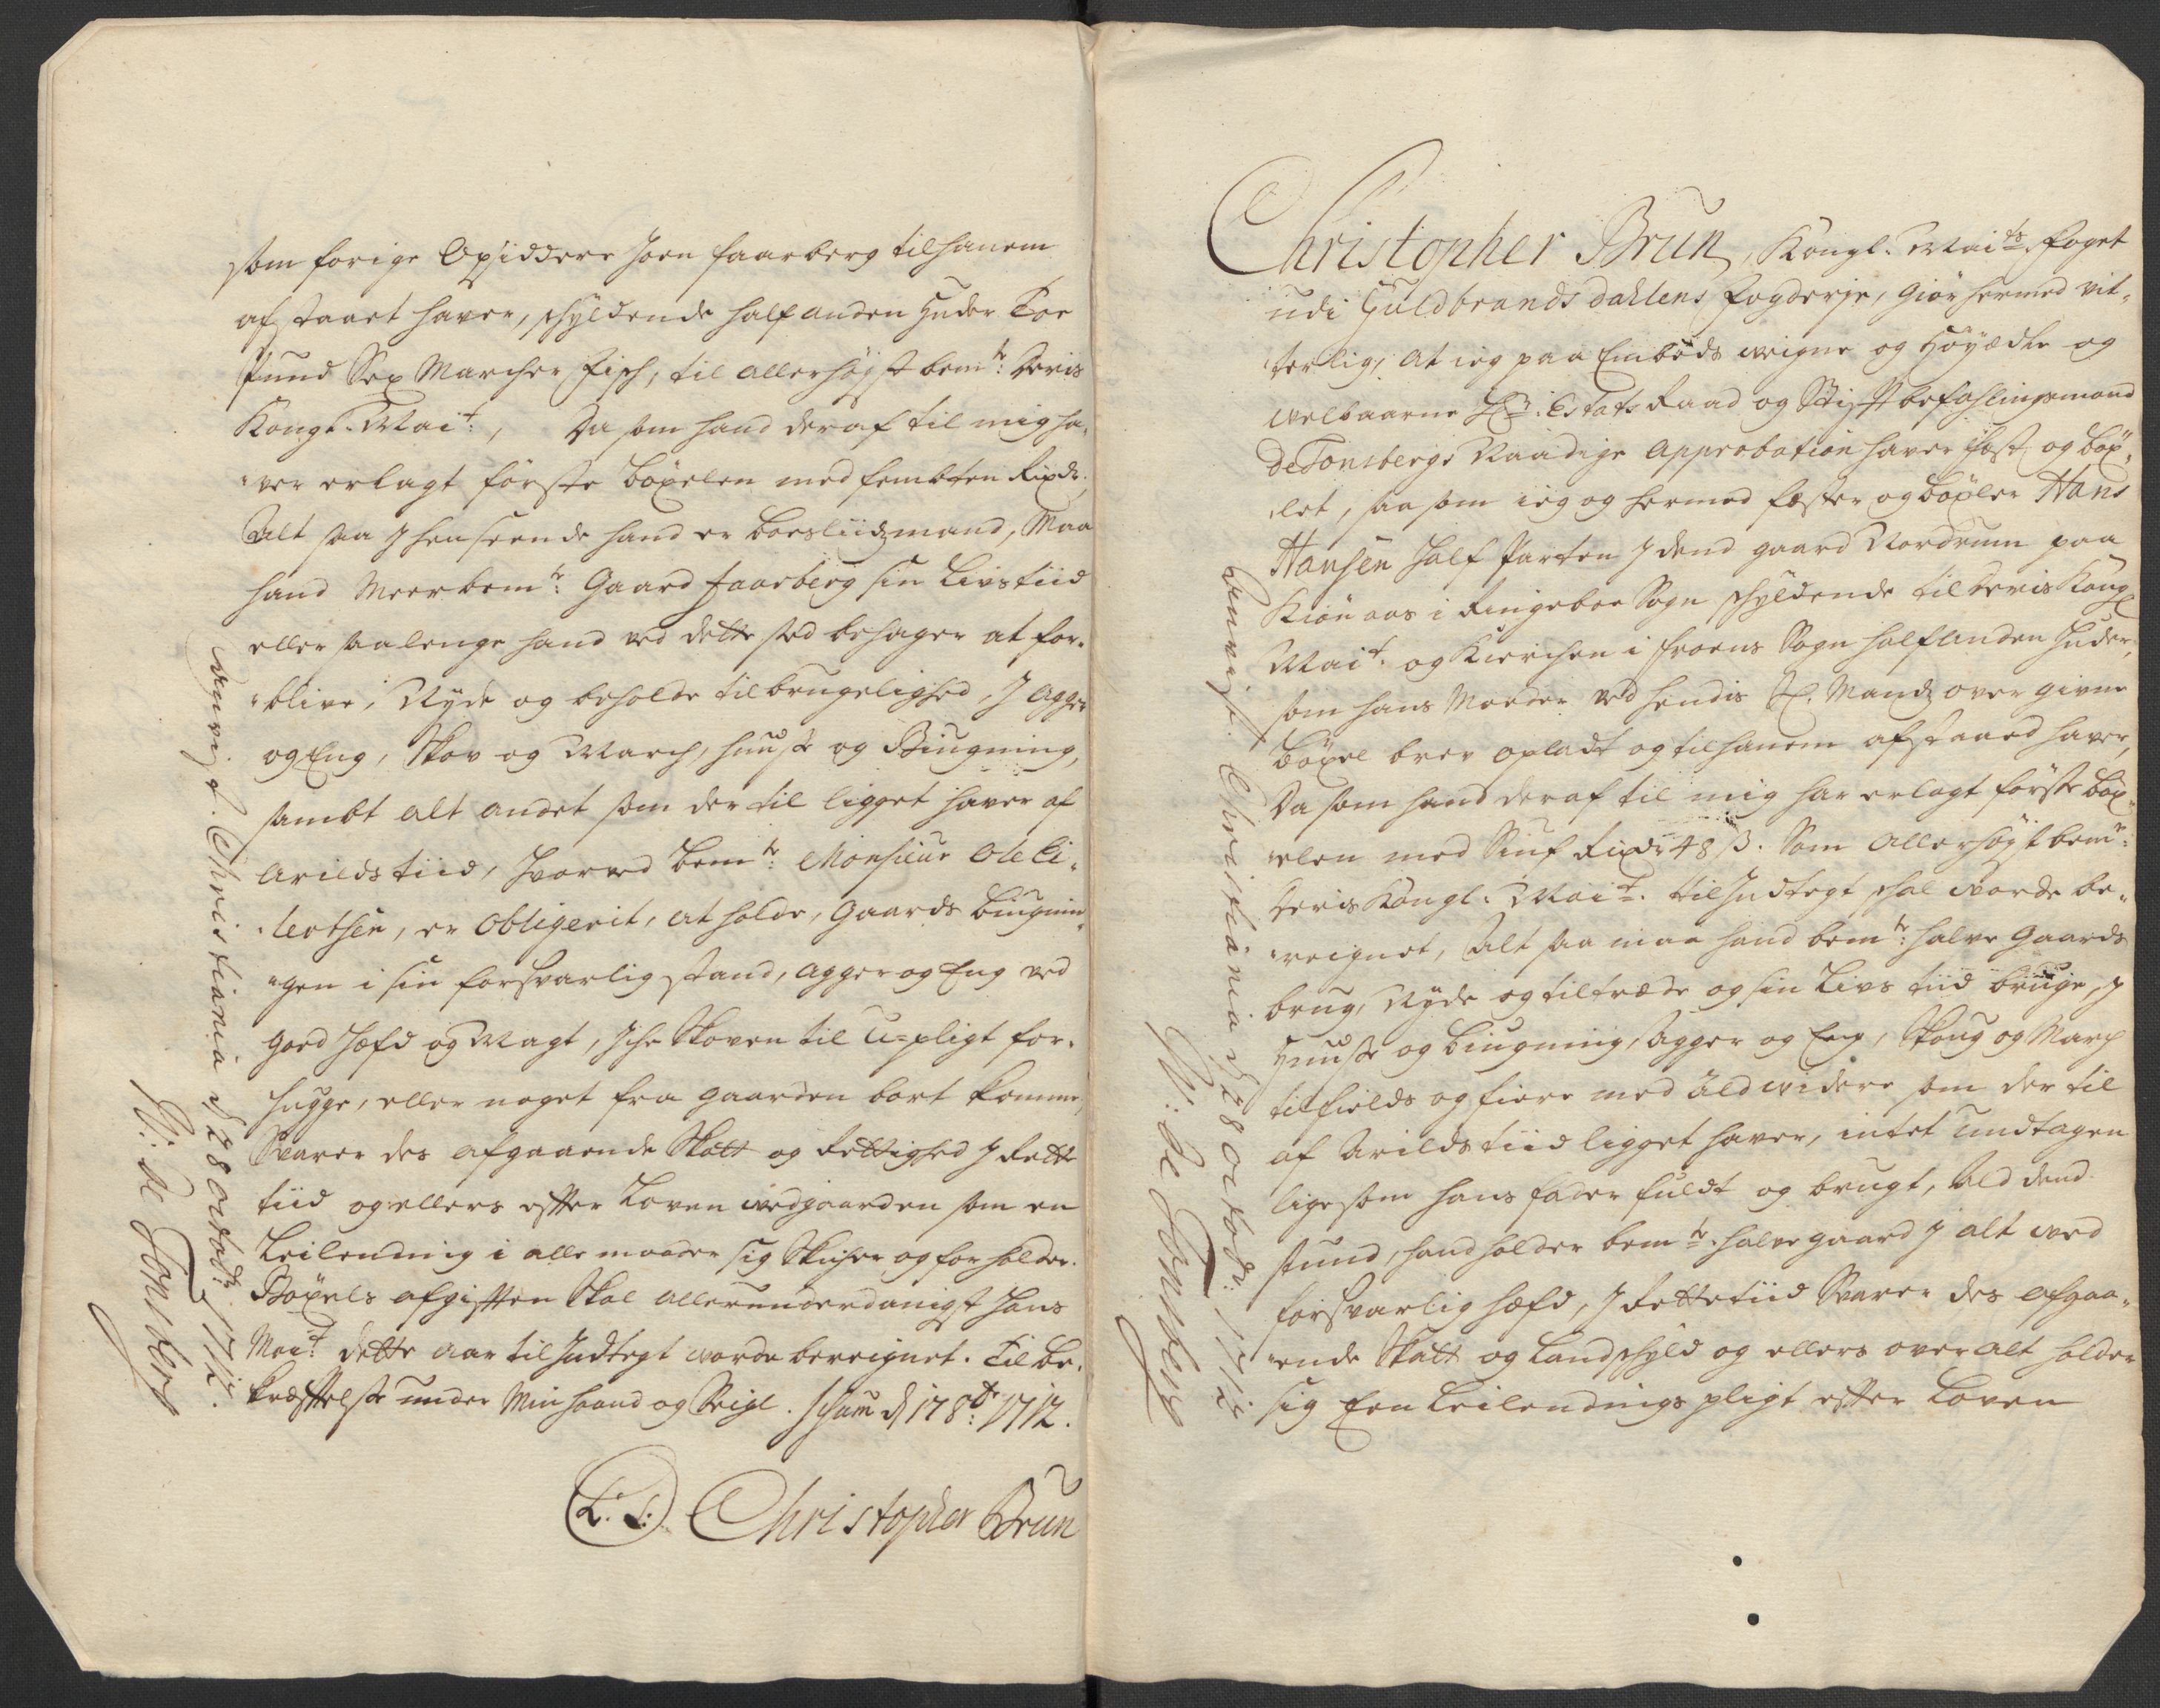 som forige Opsiddere Joen Faarberg til hanem
afstaaet haver, schyldende half anden Huder Toe
Pund Sex Marcher Fisch, til allerhøyst bemte: Deris
Kongl. Mait:, Da som hand deraf til mig ha-
ver erlagt første böxelen med fembten Rixdr.
Alt saa J henseende hand er boesliidzmand, Maa
hand Meerbemte: Gaard Faarberg sin Livstiid
eller saa lenge hand ved dette sted behager at for-
blive, Nyde og beholde til brugelighed, J Agger
og Eng, Skov og March, huuse og Biugning,
sambt alt andet som der til ligget haver af
Arilds tiid, hvorved bemte: Monsieur Ole Ei-
lertsen, er obligerit, at holde, Gaards Biugnin-
gen i sin forsvarlig stand, Agger og Eng ved
goed hæfd og Magt, iche Skoven til U-pligt for-
hugge, eller noget fra gaarden bort komme,
Svarer des afgaaende Skatt og Rettighed J Rette
tiid og ellers efter Loven ved gaarden som en
Leilending i alle maader sig skicher og forholder.
Böxels afgiften Skal allerunderdanigst Hans
Mait: dette aar til Indtegt vorde bereignet. Til be-
kræftelse under Min Haand og Seigl. d 17 8br: 1712.
(L. S.) Christopher Brun
Anvist. Christiania d 28 octobr: 1712.
W: de Tonsberg
Christopher Brun, Kongl. Maits: Foget
udi Guldbrandsdahlens Fogderje, Giør hermed vit-
terlig, at ieg paa Embeds veigne og Høyædle og
velbaarne Hr: Estats Raad og Stiftbefahlingsmand
de Tonsbergs Naadige Approbation haver fæst og böx-
let, saa som ieg og hermed fæster og böxler Hans
Hansen Half Parten J dend gaard Nordrum paa
Kiönaas i Ringeboe Sogn schyldende til Deris Kongl
Mait. og Kierchen i Froens Sogn half anden Huder,
som hans Moeder ved hendis Sl. Mandz over givne
böxel brev opladt og til hanem afstaaed haver,
Da som hand deraf til mig har erlagt første böx-
elen med Siuf Rixdr 48 ß. Som allerhøyst bemte:
Deris Kongl. Mait. til Indtegt schal vorde be-
reignet, Alt saa maa hand bemte: halve Gaards
brug, Nyde og tiltræde og sin Livs tiid bruge, J
Huuse og Biugning, Agger og Eng, Skoug og March
til fields og fiere med ald videre som der til
af Arilds tiid ligget haver, intet undtagen
lige som hans fader fuldt og brugt, Ald dend
stund, hand holder bemte: halve gaard J alt ved
forsvarlig hæfd, J Rette tiid Svarer des afgaa-
ende Skatt og Landschyld og ellers over alt holder
sig Een Leilendings pligt efter Loven
Anvist. Christiania d 28 octobr: 1712
W: de Tonsberg